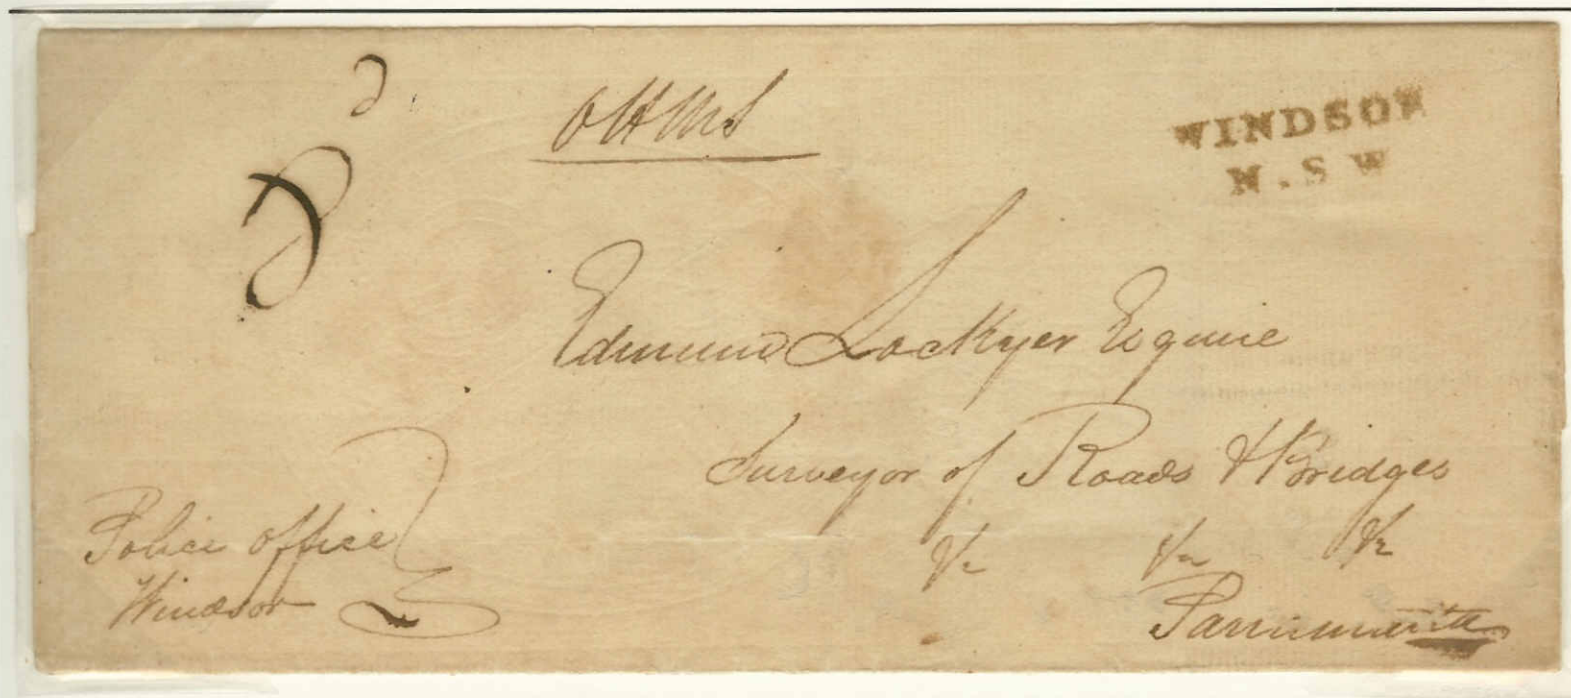 8d
OHMS
WINDSOR
N.S W
Edmund Lockyer Esquire
Surveyor of Roads & Bridges
&c &c &c
Parramatta
Police office
Windsor